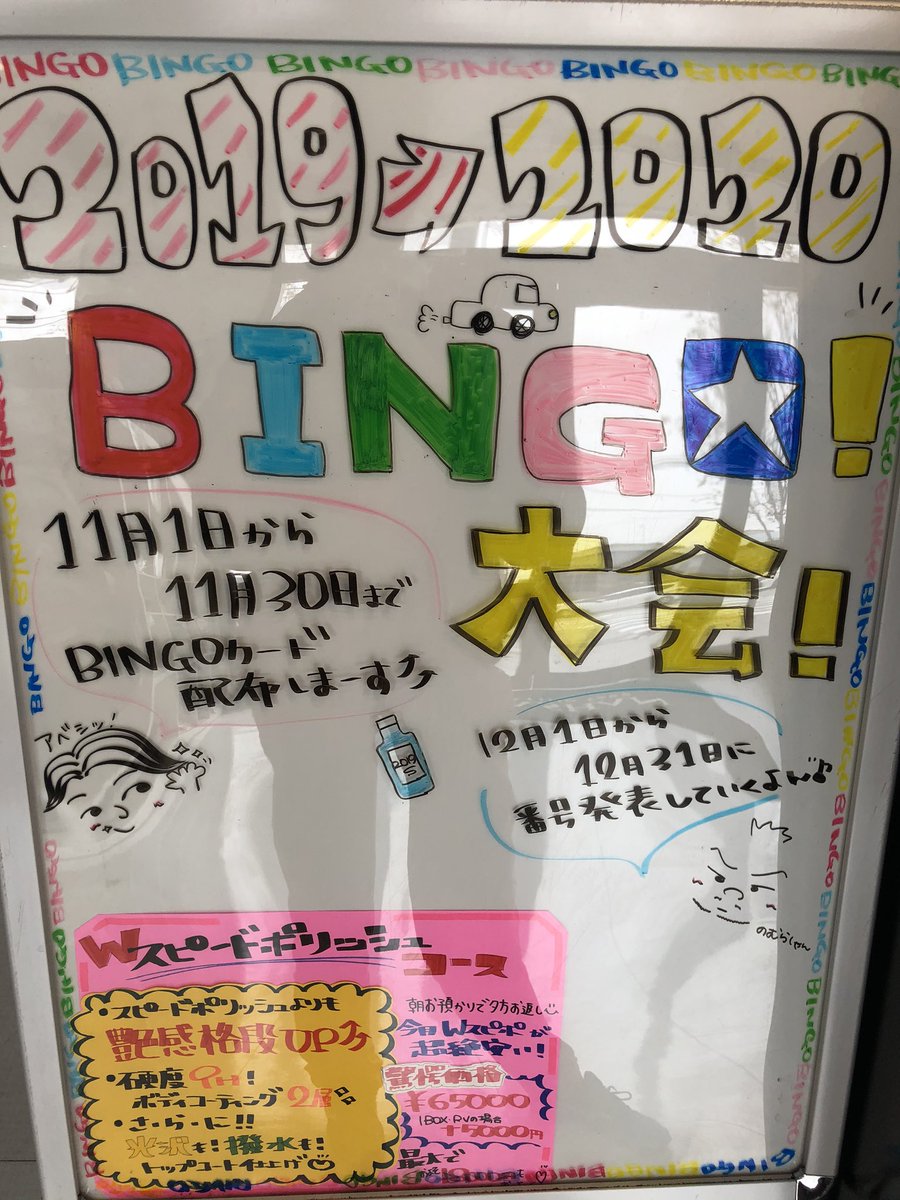 BINGO BINGO BINGO BINGO BINGO BINGO BINGO
2019→2020
BINGO!
大会!
11月1日から
11月30日まで
BINGOカード
配布しまーす
アベシッ!
2019
12月1日から
12月31日に
番号発表していくよん♪
のむらくん
Wスピードポリッシュ
コース
・スピードポリッシュよりも
艶感格段UP
・硬度9H!
ボディコーティング2層
・さ・ら・に!!
光沢も!撥水も!
トップコート仕上げ♡
朝お預かりで夕方お返し
今日Wスピポが
超絶安い!
驚愕価格
¥65000
1BOX・RVの場合
+5000円
最大で